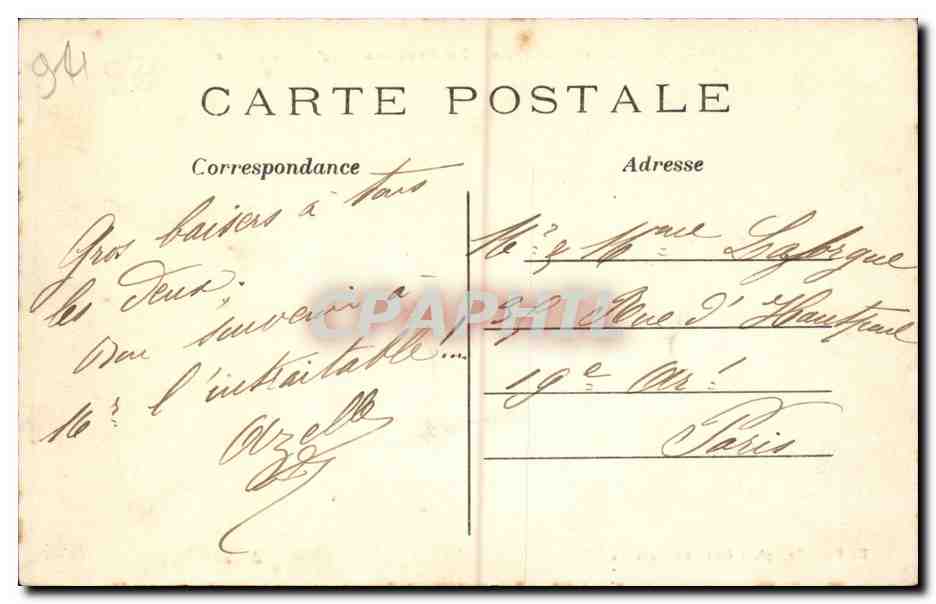 94
CARTE POSTALE
Correspondance
Adresse
Gros baisers à tous
les deux.
Bon souvenir à
Mr. l'intraitable!...
Azelle
Mr. & Mme Laforgue
39 Rue d'Hautpoul
19e Art
Paris
CPAPHIL